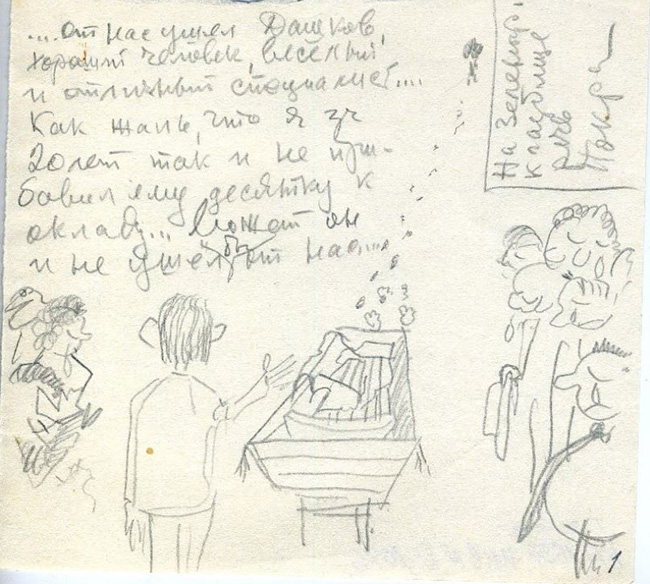 ...От нас ушел Дашков,
хороший человек, весёлый
и отличный специалист....
Как жаль, что я за
20 лет так и не при-
бавил ему десятку к
окладу... Может он
бы
и не ушел от нас...
На Зеленогр.
кладбище
речь
1